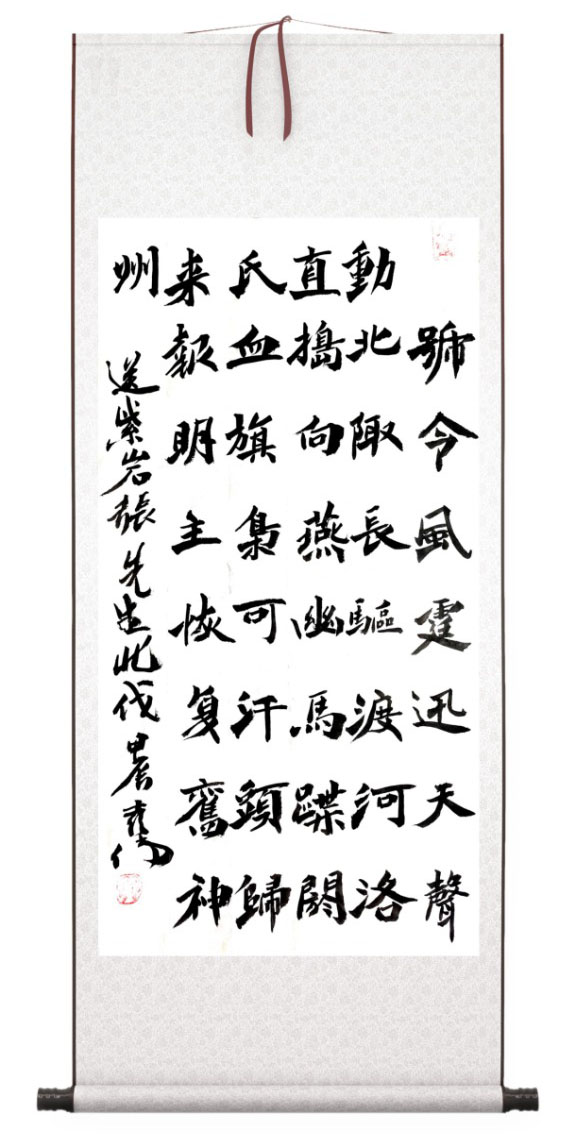 號令風霆迅天聲
動北陬長驅渡河洛
直搗向燕幽馬蹀閼
氏血旗梟可汗頭歸
来報明主恢复舊神
州
送紫岩張先生北伐 甲辰